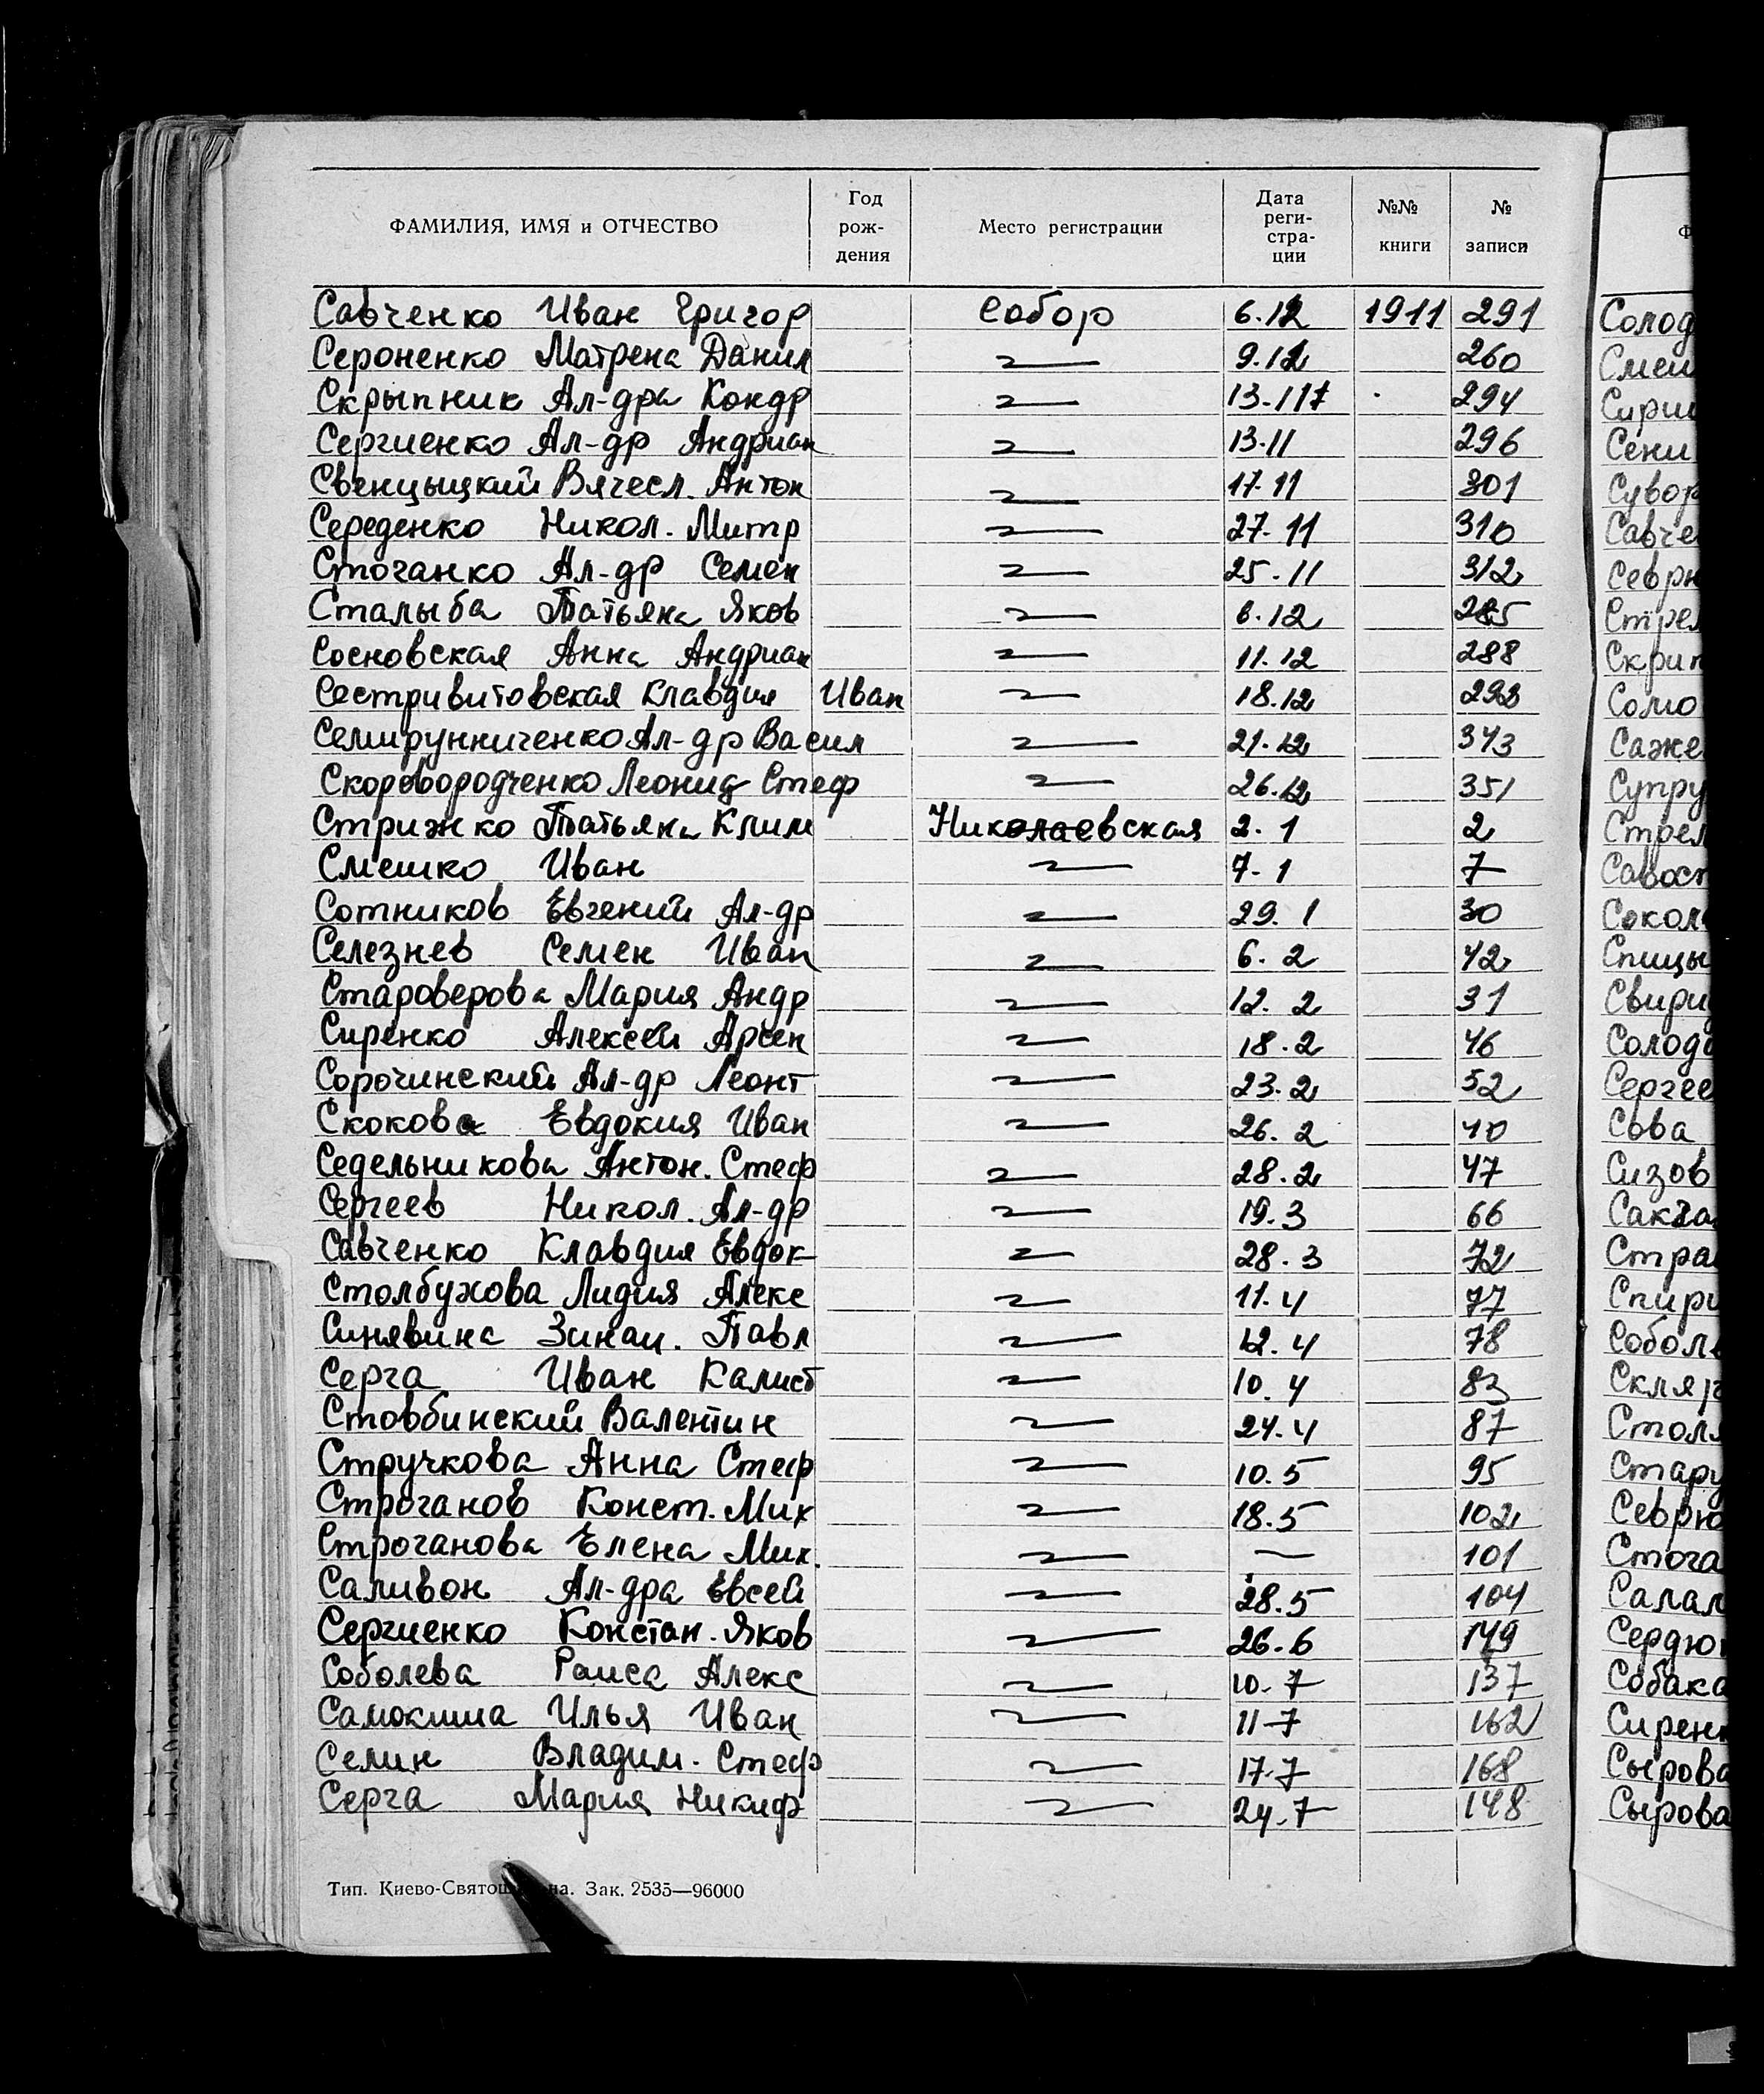 ФАМИЛИЯ, ИМЯ и ОТЧЕСТВО Год рож- дения Место регистрации Дата реги- стра- ции №№ книги № записи
Савченко Иван Григор собор 6.12 1911 291
Сероненко Матрена Данил 9.12 260
Скрыпник Ал-дра Кондр 13-11 294
Сергиенко Ал-др Андриан 13-11 296
Свенцыцкий Вячесл. Антон 17-11 301
Середенко Никол. Митр 27-11 310
Стоганко Ал-др Семен 25-11 312
Сталыба Татьяна Яков 6.12 285
Сосновская Анна Андриан 11.12 288
Сестривитовская Клавдия Иван 18.12
Семирунниченко Ал-др Васил 21.12 343
Сковородченко Леонид Стеф 26.12 351
Стрижко Татьяна Клим Николаевская 2.1 2
Смешко Иван 7-1 7
Сотников Евгений Ал-др 29.1 30
Селезнев Семен Иван 6.2 42
Староверова Мария Андр 12.2 31
Сиренко Алексей Арсен 18.2 46
Сорочинский Ал-др Леонт 23.2 52
Скокова Евдокия Иван 26.2 40
Седельникова Антон. Стеф 28.2 47
Сергеев Никол. Ал-др 19.3 66
Савченко Клавдия Евдок 28.3 72
Столбухова Лидия Алекс 11.4 77
Синявина Зинаи. Павл 12.4 78
Серга Иван Калист 10.4 83
Стовбинский Валентин 24.4 87
Стручкова Анна Стеф 10.5 95
Строганов Конст. Мих 18.5 102
Строганова Елена Мих. 101
Саливон Ал-дра Евсей 28.5 104
Сергиенко Констан. Яков 26.6 149
Соболева Раиса Алекс 10-7 137
Самокиша Илья Иван 11-7 162
Селин Владим. Стеф 17.7 168
Серга Мария Никиф 24.7 148
Тип. Киево-Святош на. Зак. 2535—96000